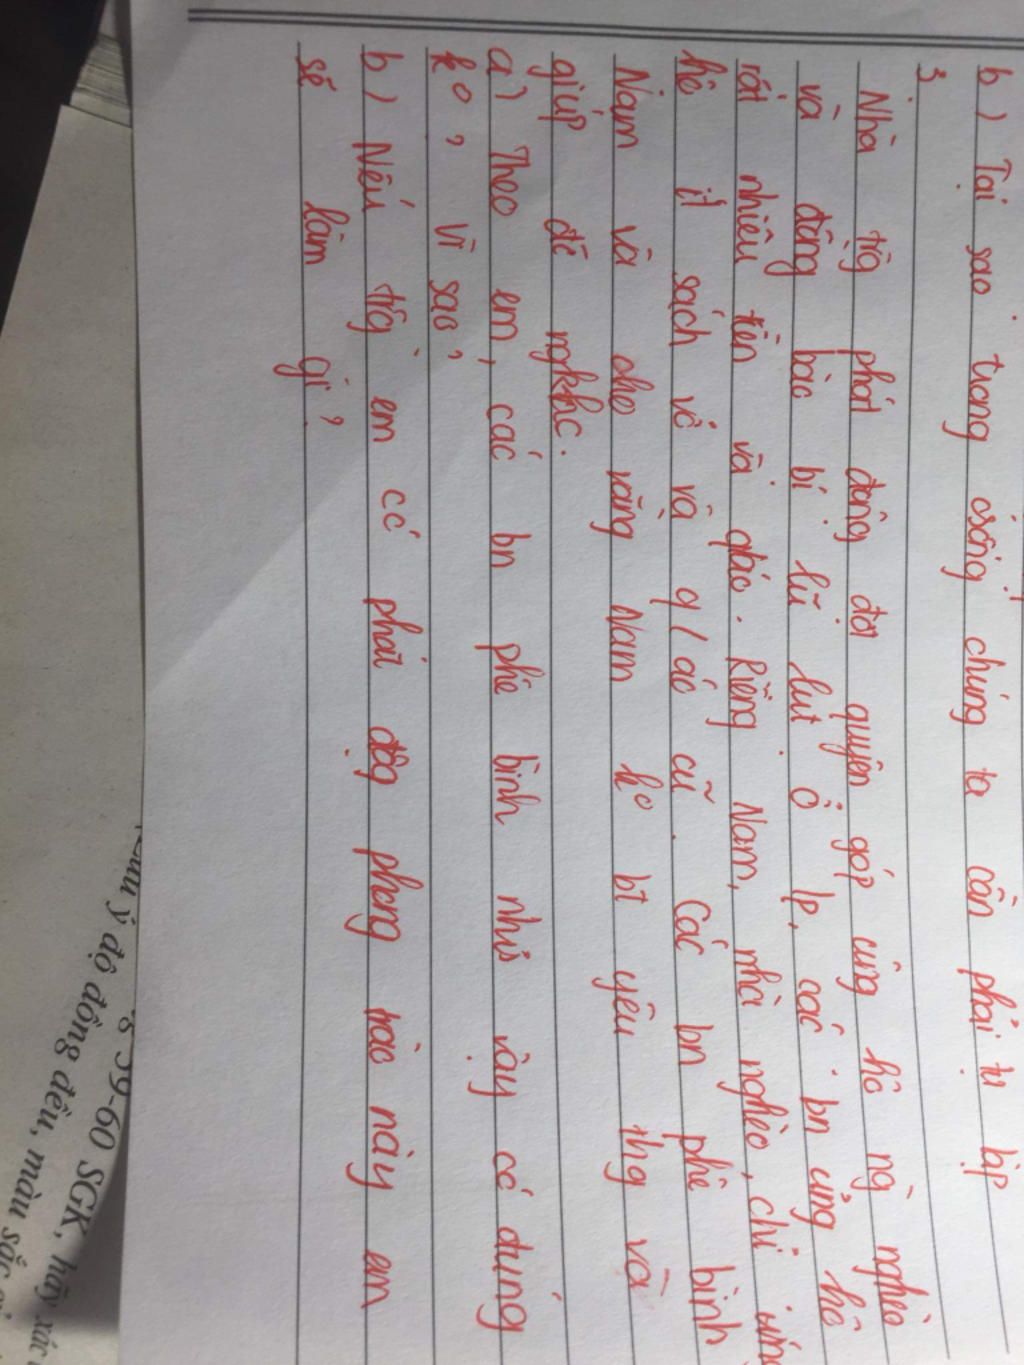 b) Tại sao trong csống chúng ta cần phải tự lập
3
Nhà trg phát động đợt quyên góp ủng hộ ng nghèo
và đồng bào bị lũ lụt. Ở lp, các bn ủng hộ
rất nhiều tiền và qáo. Riêng Nam, nhà nghèo, chỉ ủng
hộ ít sách vở và q/áo cũ. Các bn phê bình
Nam và cho rằng Nam ko bt yêu thg và
giúp đỡ ngkhc.
a) Theo em, các bn phê bình như vậy có đúng
ko? Vì sao?
b) Nếu trg em có phát động phong trào này em
sẽ làm gì?
59-60 SGK, hãy xác
Lưu ý độ đồng đều, màu sắc